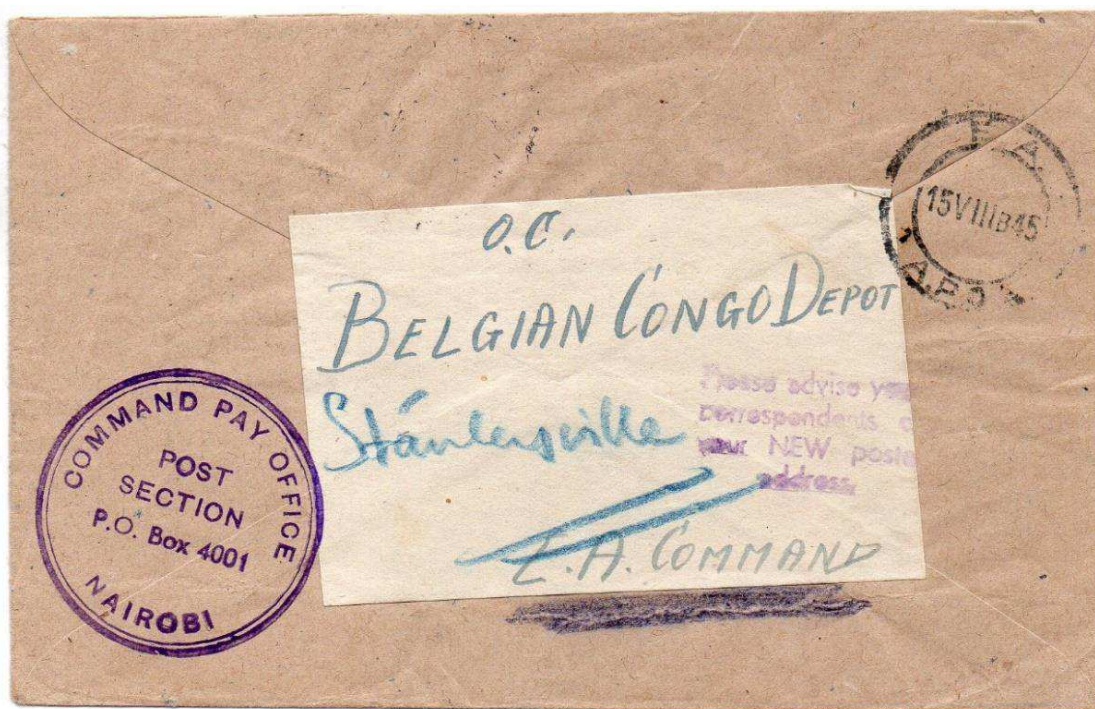 E.A.
15VIIIB45
A.P.O
O.C.
BELGIAN CONGO DEPOT
Stánleyville
Please advise you
correspondents o
your NEW posta
address.
E.A. COMMAND
COMMAND PAY OFFICE
POST
SECTION
P.O. Box 4001
NAIROBI